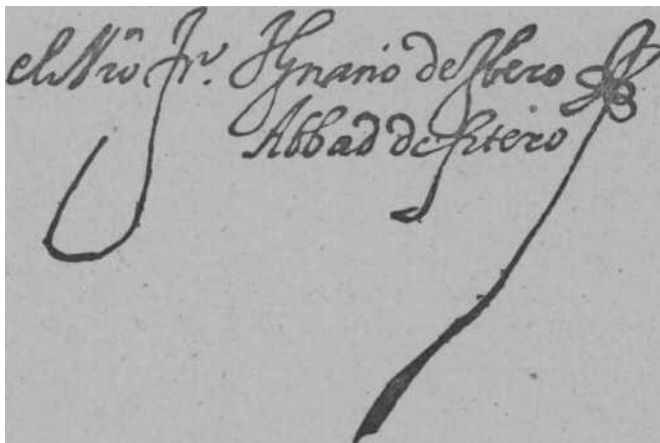 el Mrō Fr. Ygnacio de Ybero
Abbad de fitero